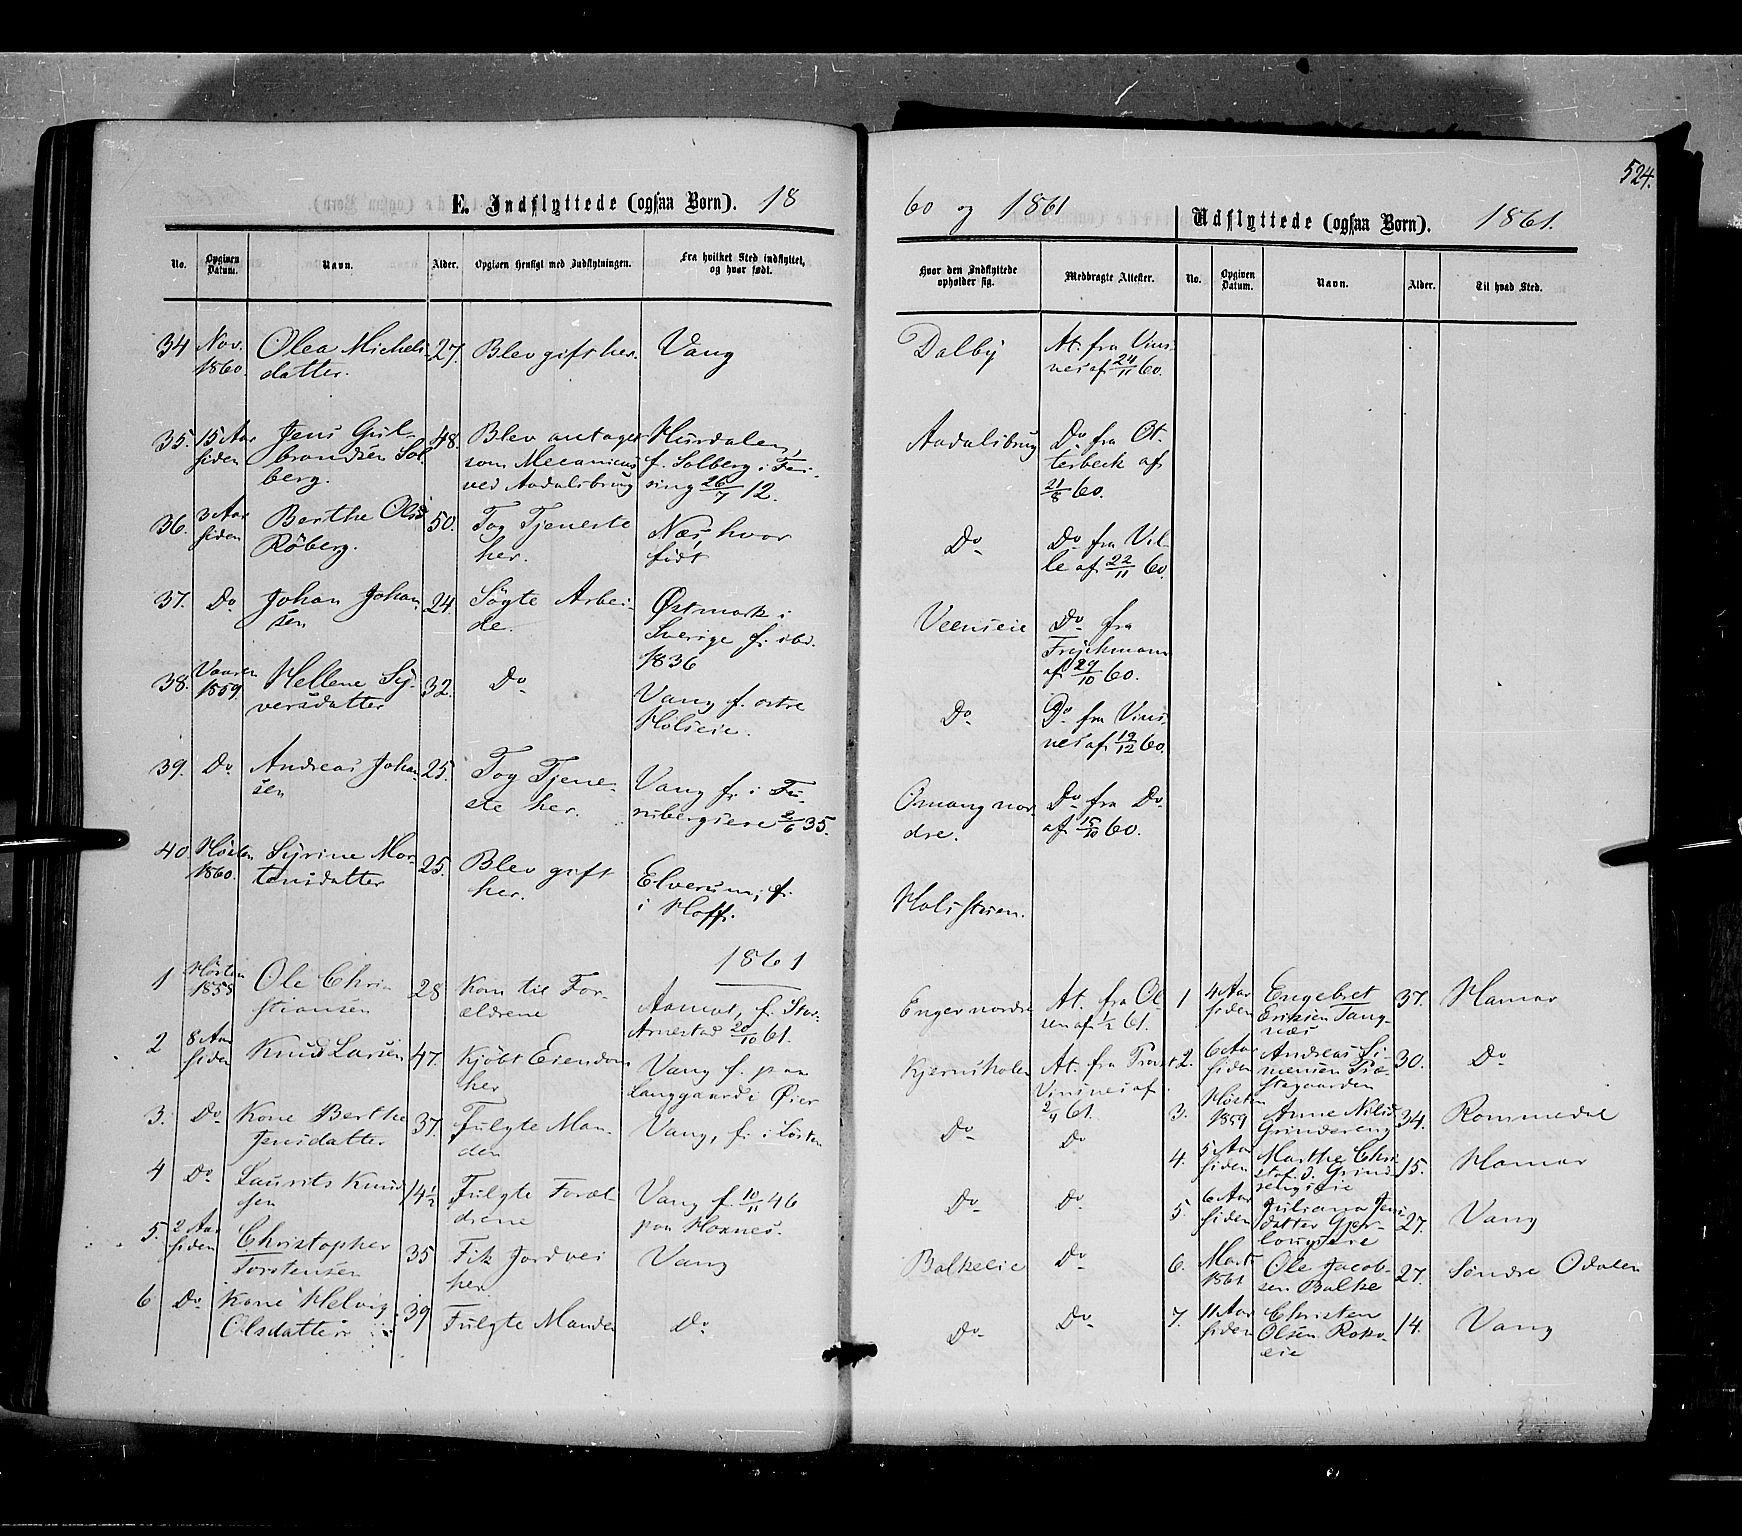 524.
E. Indflyttede (ogsaa Børn). 18
60 og 1861
Udflyttede (ogsaa Børn). 1861.
No. Opgiven Datum. Navn. Alder. Opgiven Hensigt med Indflytningen. Fra hvilket Sted indflyttet, og hvor født.
Hvor den Indflyttede opholder sig. Medbragte Attester. No. Opgiven Datum. Navn. Alder. Til hvad Sted.
34 Nov. 1860. Olea Michels datter. 27. Blev gift her. Vang Dalby At. fra Vinsnes af 24/11 60.
35. 15 Aar siden Jens Gulbrandsen Solberg. 48. Blev antaget som Mecanicus ved Aadalsbrug Hurdalen, f. Solberg i 26/7 12. Aadalsbrug Do fra Otterbeck af 21/8 60.
36. 3 Aar siden Berthe Olsd Röberg. 50. Tog Tjeneste her. Næs, hvor født Do Do fra af 22/11 60.
37. Do Johan Johansen 24. Søgte Arbeide. Østmark i Sverige f. ibd. 1836 Veenseie Do fra af 29/10 60.
38. Vaaren 1859. Hellene Syversdatter 32. Do Vang f. østre Holseie. Do Do fra Vinsnes af 19/12 60.
39. Do Andreas Johansen 25. Tog Tjeneste her. Vang f. i Furubergseie 2/6 35. Omang nordre. Do fra Do af 15/10 60.
40. Høsten 1860. Syrine Mortensdatter 25. Blev gift her. Elverum, f. i Hoff. Holsstuen.
1861
1 Høsten 1858 Ole Christiansen 28 Kom til Forældrene Aamot, f. 20/10 61. Enger nordre At. fra af 1/2 61.
2 8 Aar siden Knud Larsen 47. Kjøbt Eiendom her Vang f. paa Langgaard i Øier Kjernsholen At. fra Vinsnes af 2/4 61.
3. Do Kone Berthe Jensdatter 37. Fulgte Manden Vang, f. i Løsten Do Do
4 Do Laurits Knudsen 14½ Fulgte Forældrene Vang f. 10/11 46 paa Do Do
5. 2 Aar siden Christopher Torstensen 35 Fik Jordvei her Vang Balkeeie Do
6 Do Kone Helvig Olsdatter 39 Fulgte Manden Do Do Do
1 4 Aar siden Engebret Eriksen Tangnæs 37. Hamar
2. 6 Aar siden Andreas Simensen Præstegaarden 30. Do
3. Høsten 1859 Anne Nilsd Grindereng 34. Rommedal
4. 5 Aar siden Marthe Christof. d. Grinderengseie 15. Hamar
5. 6 Aar siden Juliana Jensdatter 27. Vang
6. Marts 1861 Ole Jacobsen Balke 27. Søndre Odalen
7. 11 Aar siden Christen Olsen Rokoeie 14. Vang